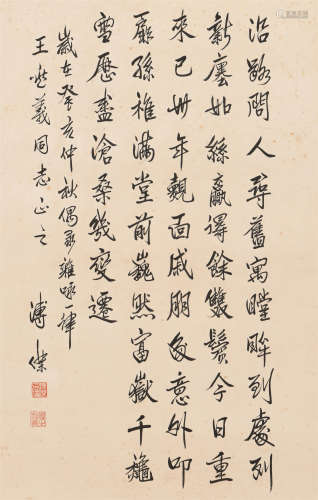 沿路問人尋舊寓瞠眸到處列
新廛如絲贏得餘雙鬢今日重
來已卅年覿面戚朋多意外叩
孫稚滿堂前巍然富嶽千龝
雪歷盡滄桑幾變遷
歲在癸亥仲秋偶雜咏一律
王義同志正之
溥傑